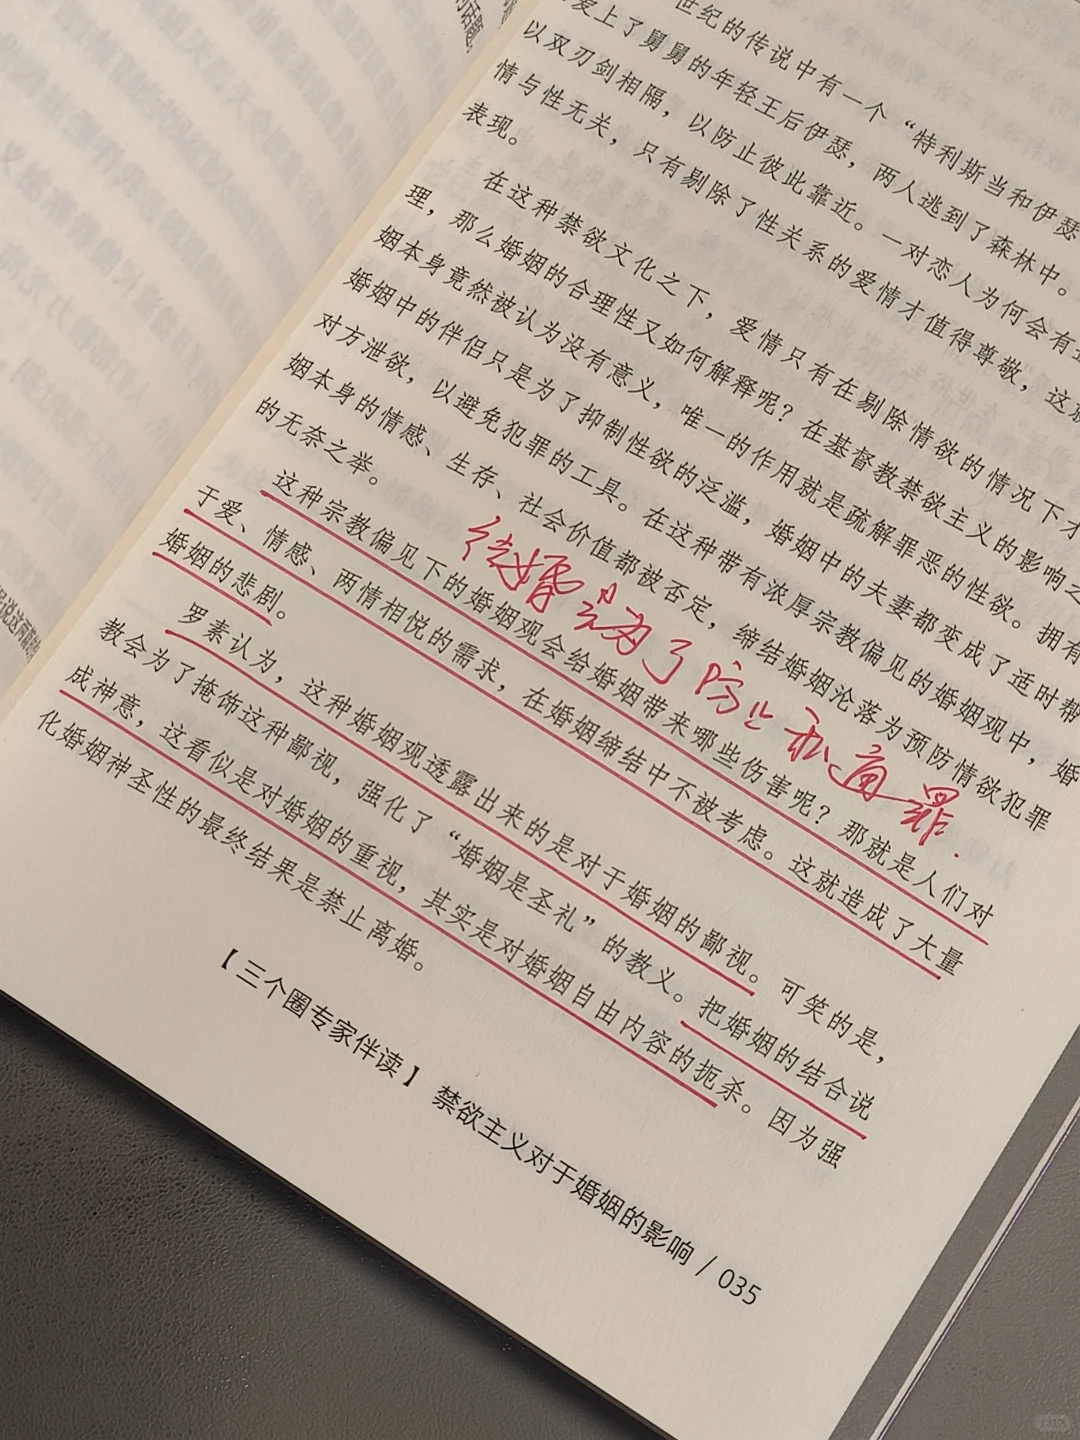 世纪的传说中有一个“特利斯当和伊瑟
爱上了舅舅的年轻王后伊瑟，两人逃到了森林中。
以双刃剑相隔，以防止彼此靠近。一对恋人为何会有
情与性无关，只有剔除了性关系的爱情才值得尊敬，这
表现。
在这种禁欲文化之下，爱情只有在剔除情欲的情况下才
理，那么婚姻的合理性又如何解释呢？在基督教禁欲主义的影响之
姻本身竟然被认为没有意义，唯一的作用就是疏解罪恶的性欲。拥有
婚姻中的伴侣只是为了抑制性欲的泛滥，婚姻中的夫妻都变成了适时帮
对方泄欲，以避免犯罪的工具。在这种带有浓厚宗教偏见的婚姻观中，婚
姻本身的情感、生存、社会价值都被否定，缔结婚姻沦落为预防情欲犯罪
的无奈之举。
结婚是为了防止私通罪.
这种宗教偏见下的婚姻观会给婚姻带来哪些伤害呢？那就是人们对
于爱、情感、两情相悦的需求，在婚姻缔结中不被考虑。这就造成了大量
婚姻的悲剧。
罗素认为，这种婚姻观透露出来的是对于婚姻的鄙视。可笑的是，
教会为了掩饰这种鄙视，强化了“婚姻是圣礼”的教义。把婚姻的结合说
成神意，这看似是对婚姻的重视，其实是对婚姻自由内容的扼杀。因为强
化婚姻神圣性的最终结果是禁止离婚。
【三个圈专家伴读】 禁欲主义对于婚姻的影响 / 035